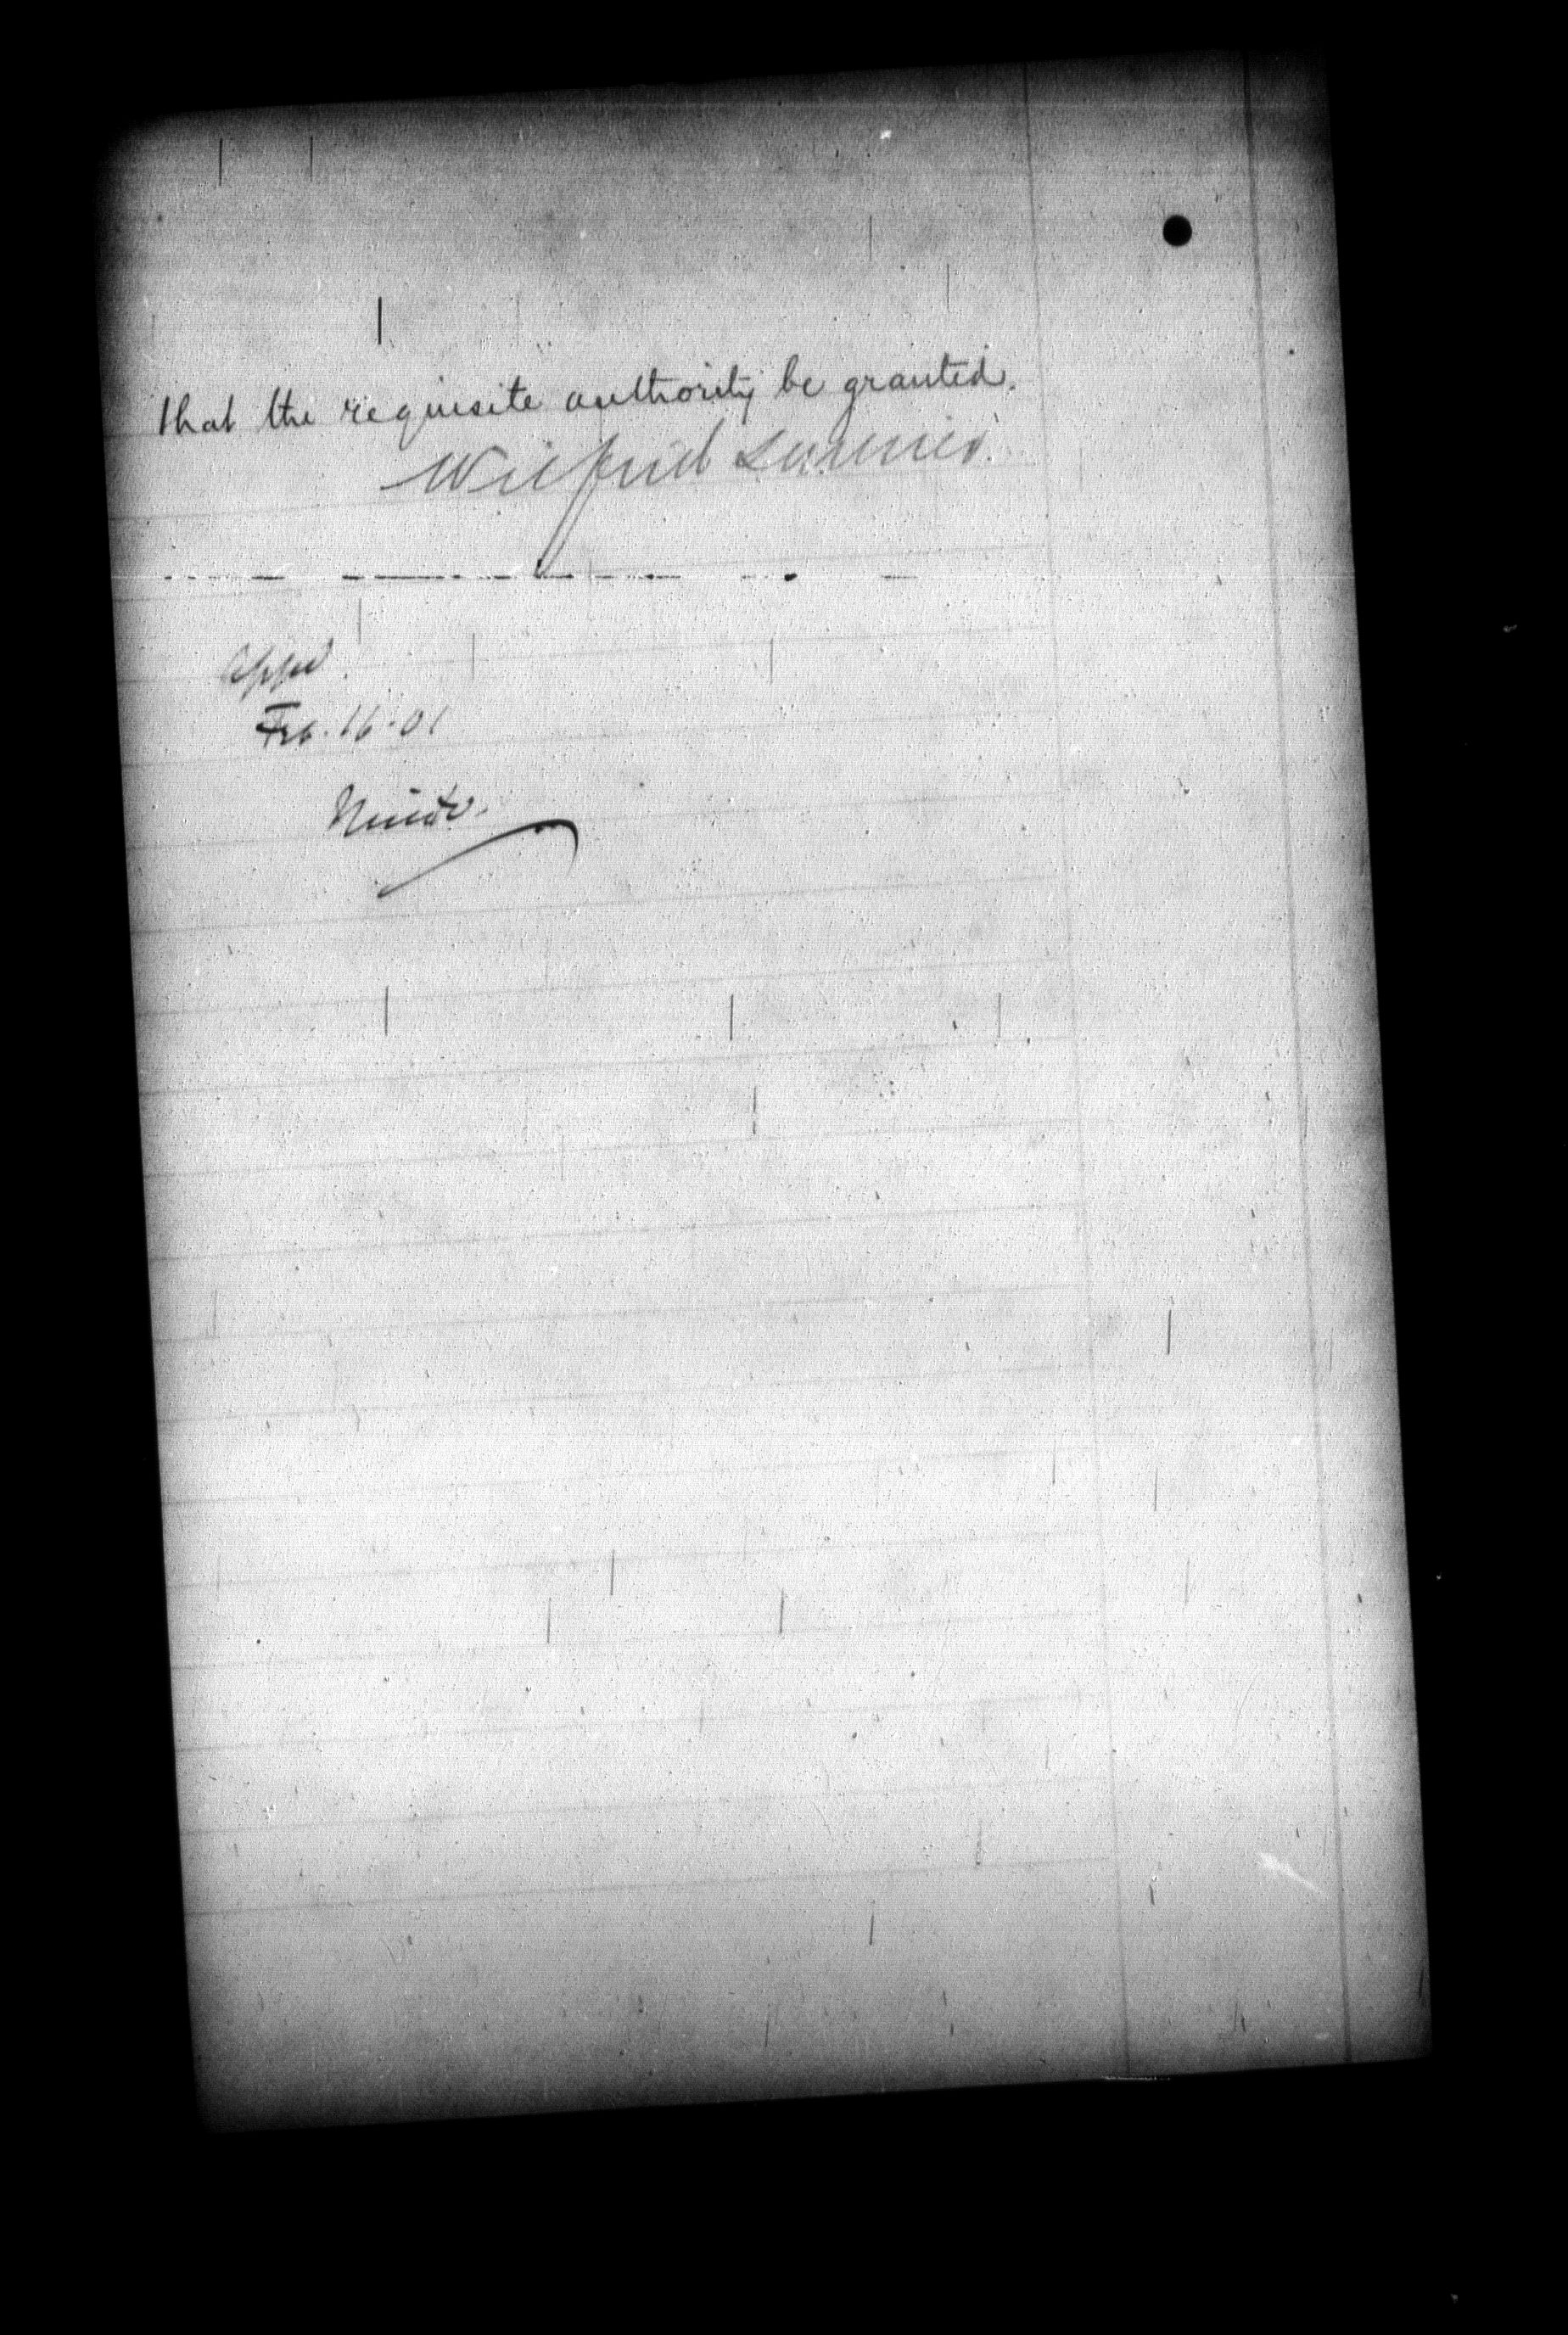 that the requisite authority be granted.
Wilfrid Laurier
Appd.
Feb. 16-01
Minto.